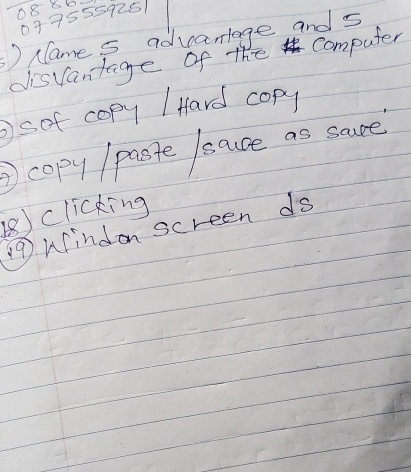 0775559261
5) Name 5 advantage and 5
disvantage of the computer
sof copy / Hard copy
copy / paste / save as save
18) clicking
19) Windon screen ds